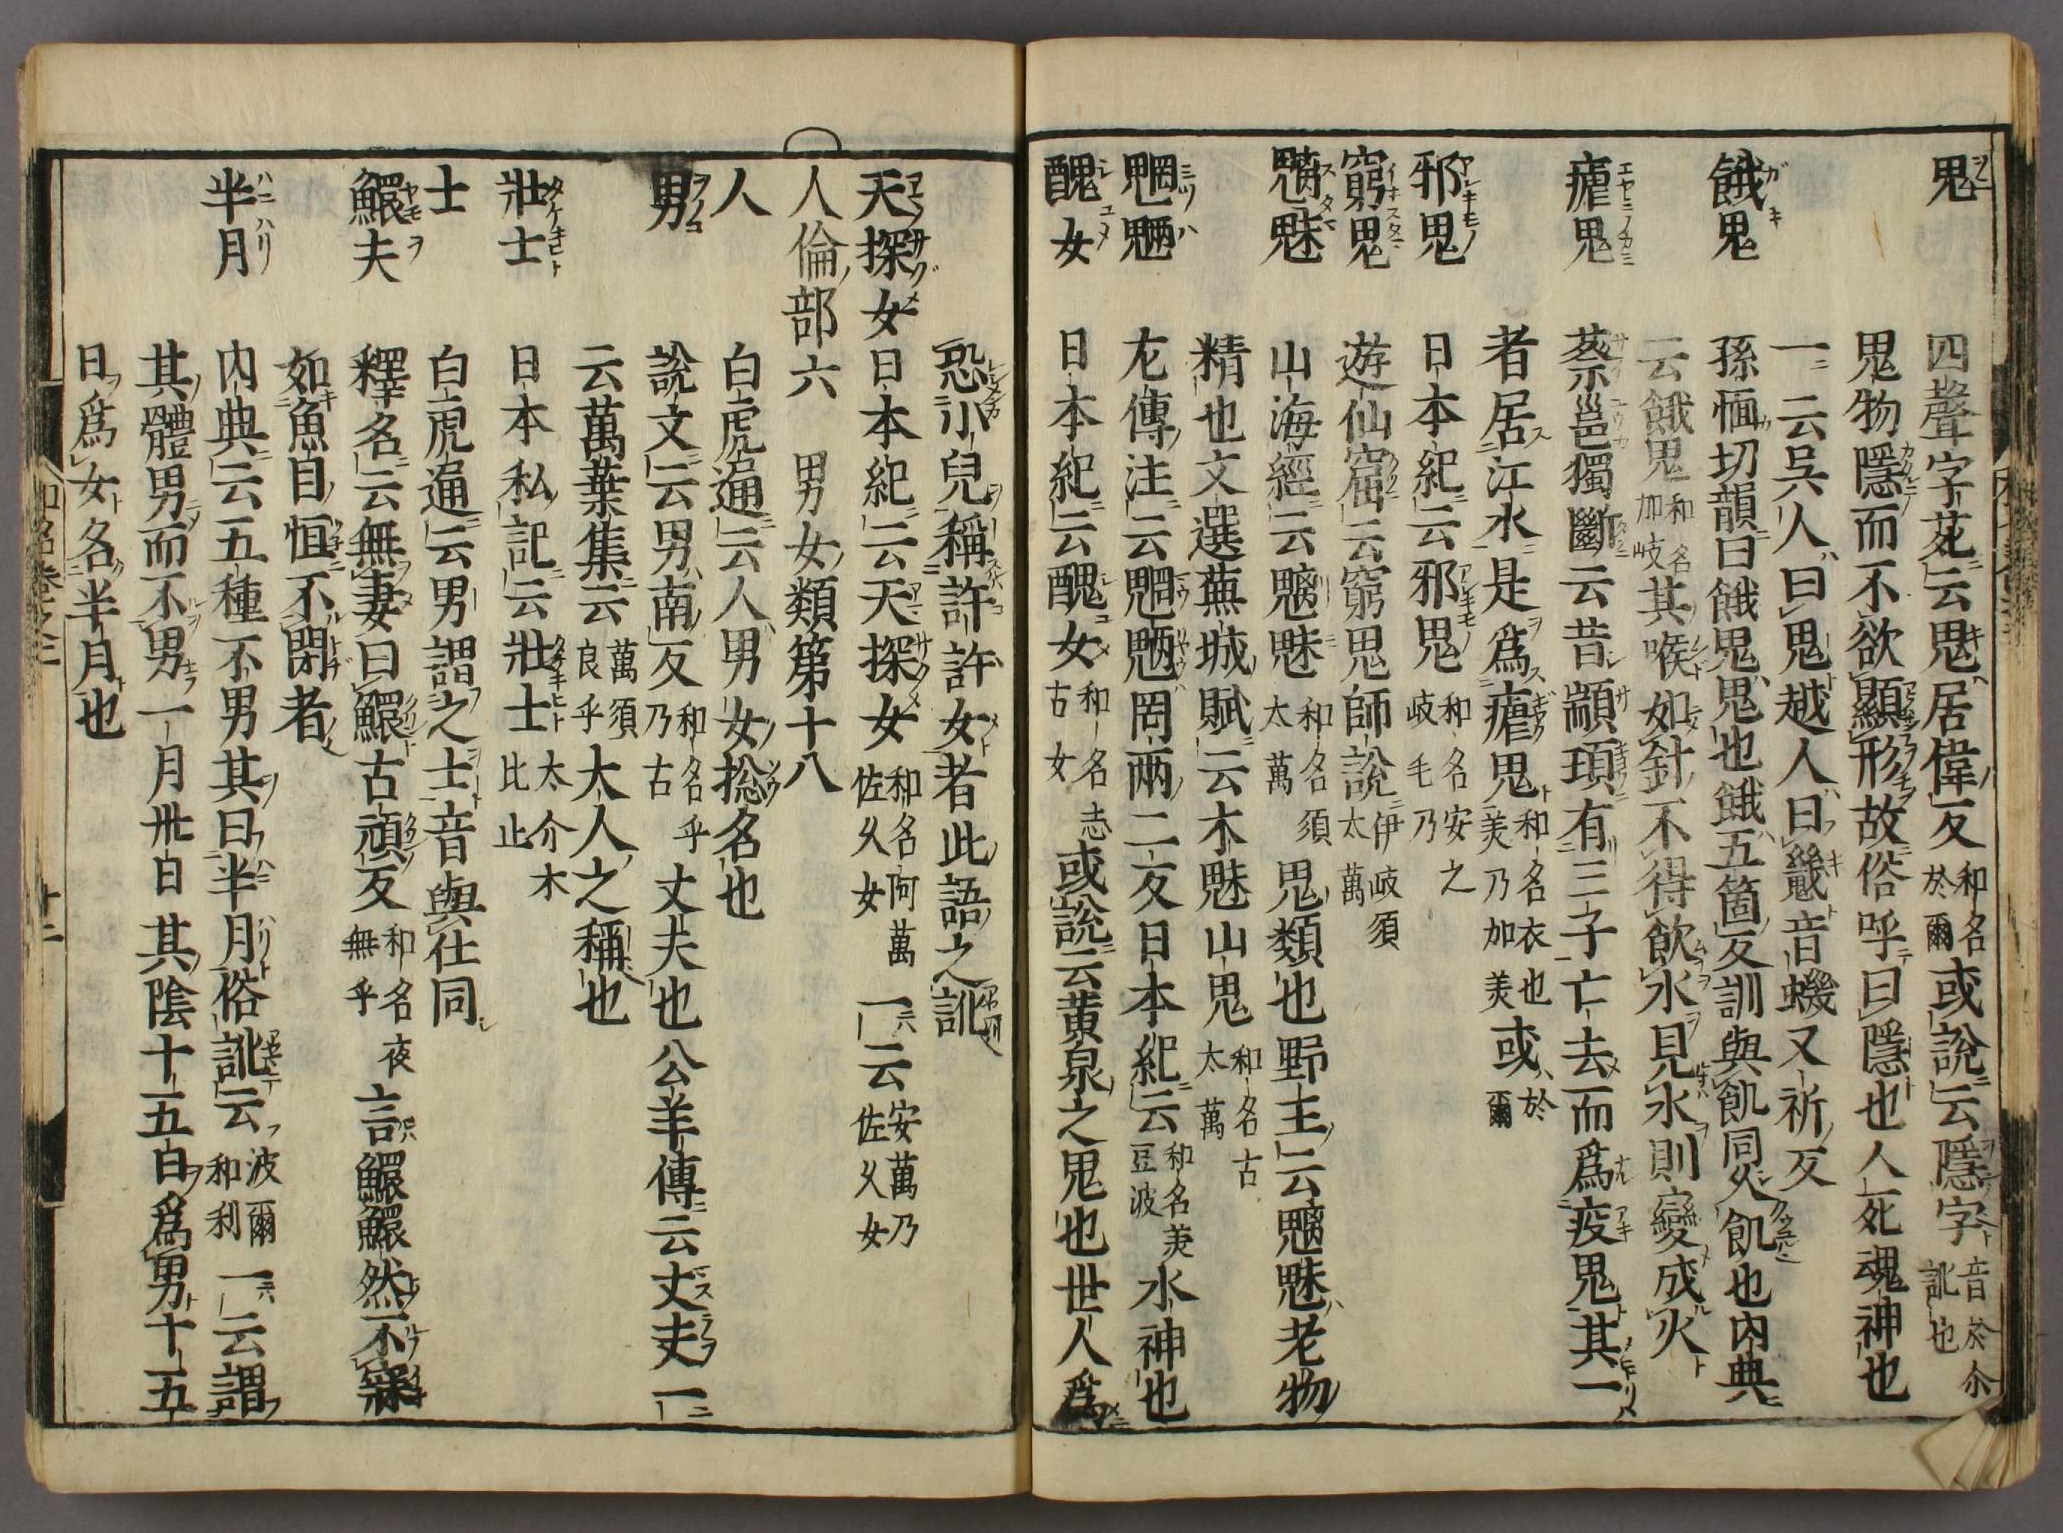 鬼 四聲字苑云鬼居偉反和名於爾或說云隱字音於尒訛也
鬼物隱而不欲顯形故俗呼曰隱也人死魂神也
一云吳人曰鬼越人曰㡬音蟣又祈反
餓鬼 孫愐切韻曰餓鬼鬼也餓五箇反訓與飢同久飢也內典
云餓鬼和名加岐其喉如針不得飲水見水則變成火
瘧鬼 蔡邕獨斷云昔顓頊有三子亡去而爲疫鬼其一
者居江水是爲瘧鬼和名衣也美乃加美或於爾
邪鬼 日本紀云邪鬼和名安之岐毛乃
窮鬼 遊仙窟云窮鬼師說伊岐須太萬
魑魅 山海經云魑魅和名須太萬鬼類也野王云魑魅老物
精也文選蕪城賦云木魅山鬼和名古太萬
魍魎 尢傳注云魍魎罔兩二反日本紀云和名美豆波水神也
醜女 日本紀云醜女和名志古女或說云黃泉之鬼也世人爲
恐小兒稱許許女者此語之訛
天探女 日本紀云天探女和名阿萬佐久女一云安萬乃佐久女
人倫部六 男女類第十八
人 白虎通云人男女惣名也
男 說文云男南反和名乎乃古丈夫也公羊傳云丈夫一
云萬葉集云萬須良乎大人之稱也
壯士 日本私記云壯士太介木比止
士 白虎通云男謂之士音與仕同
鰥夫 釋名云無妻曰鰥古頑反和名夜無乎言鰥鰥然不寐
如魚目恒不閉者
半月 內典云五種不男其曰半月俗訛云波爾和利一云謂
其體男而不男一月卅日其陰十五日爲男十五
日爲女名半月也
和名卷之二 十二